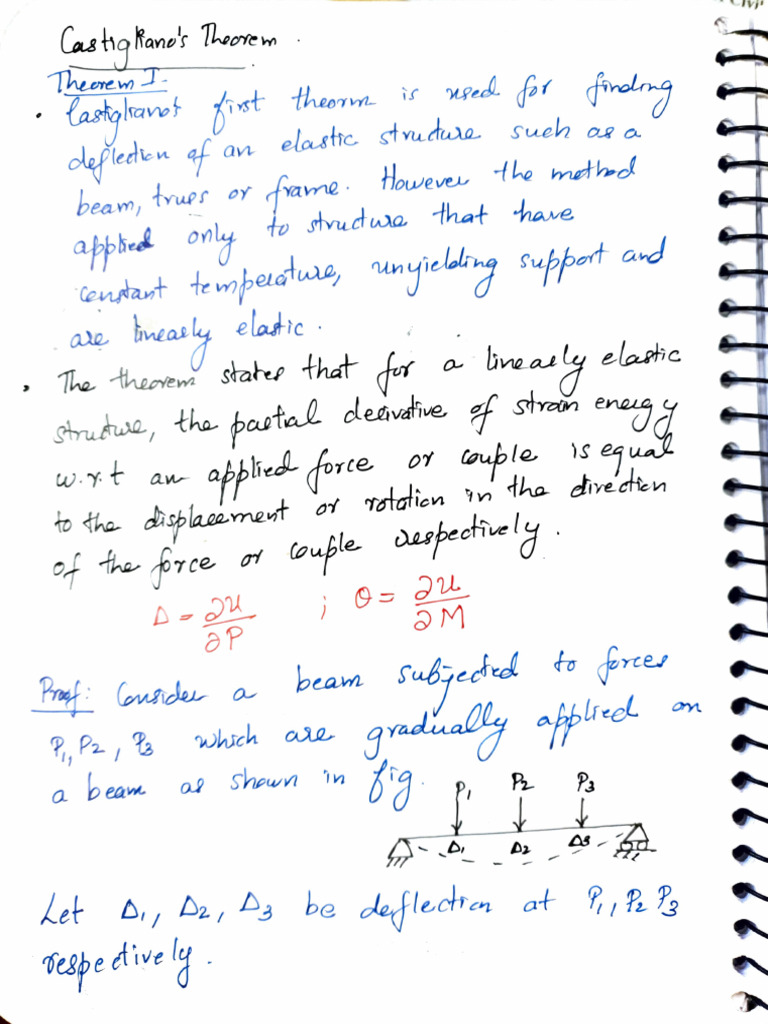 Castigliano's Theorem.
Theorem I-
• Castigliano's first theorm is used for finding
deflection of an elastic structure such as a
beam, trues or frame. However the method
applied only to structure that have
constant temperature, unyielding support and
are linearly elastic.
• The theorem states that for a linearly elastic
structure, the partial derivative of strain energy
w.r.t an applied force or couple is equal
to the displacement or rotation in the direction
of the force or couple respectively.
Δ = ∂u/∂P ; θ = ∂u/∂M
Proof: Consider a beam subjected to forces
P1, P2, P3 which are gradually applied on
a beam as shown in fig.
P1 P2 P3
Δ1 Δ2 Δ3
Let Δ1, Δ2, Δ3 be deflection at P1, P2 P3
respectively.